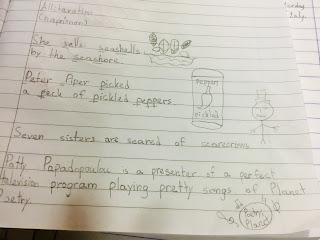 Alliteration
Tuesday
July
She sells seashells
by the seashore
Peter Piper picked
a peck of pickled peppers
pepper
pickled
Seven sisters are scared of scarecrows
Patty Papadopoulac is a presenter of a perfect
television program playing pretty songs of Planet
Poetry.
Planet